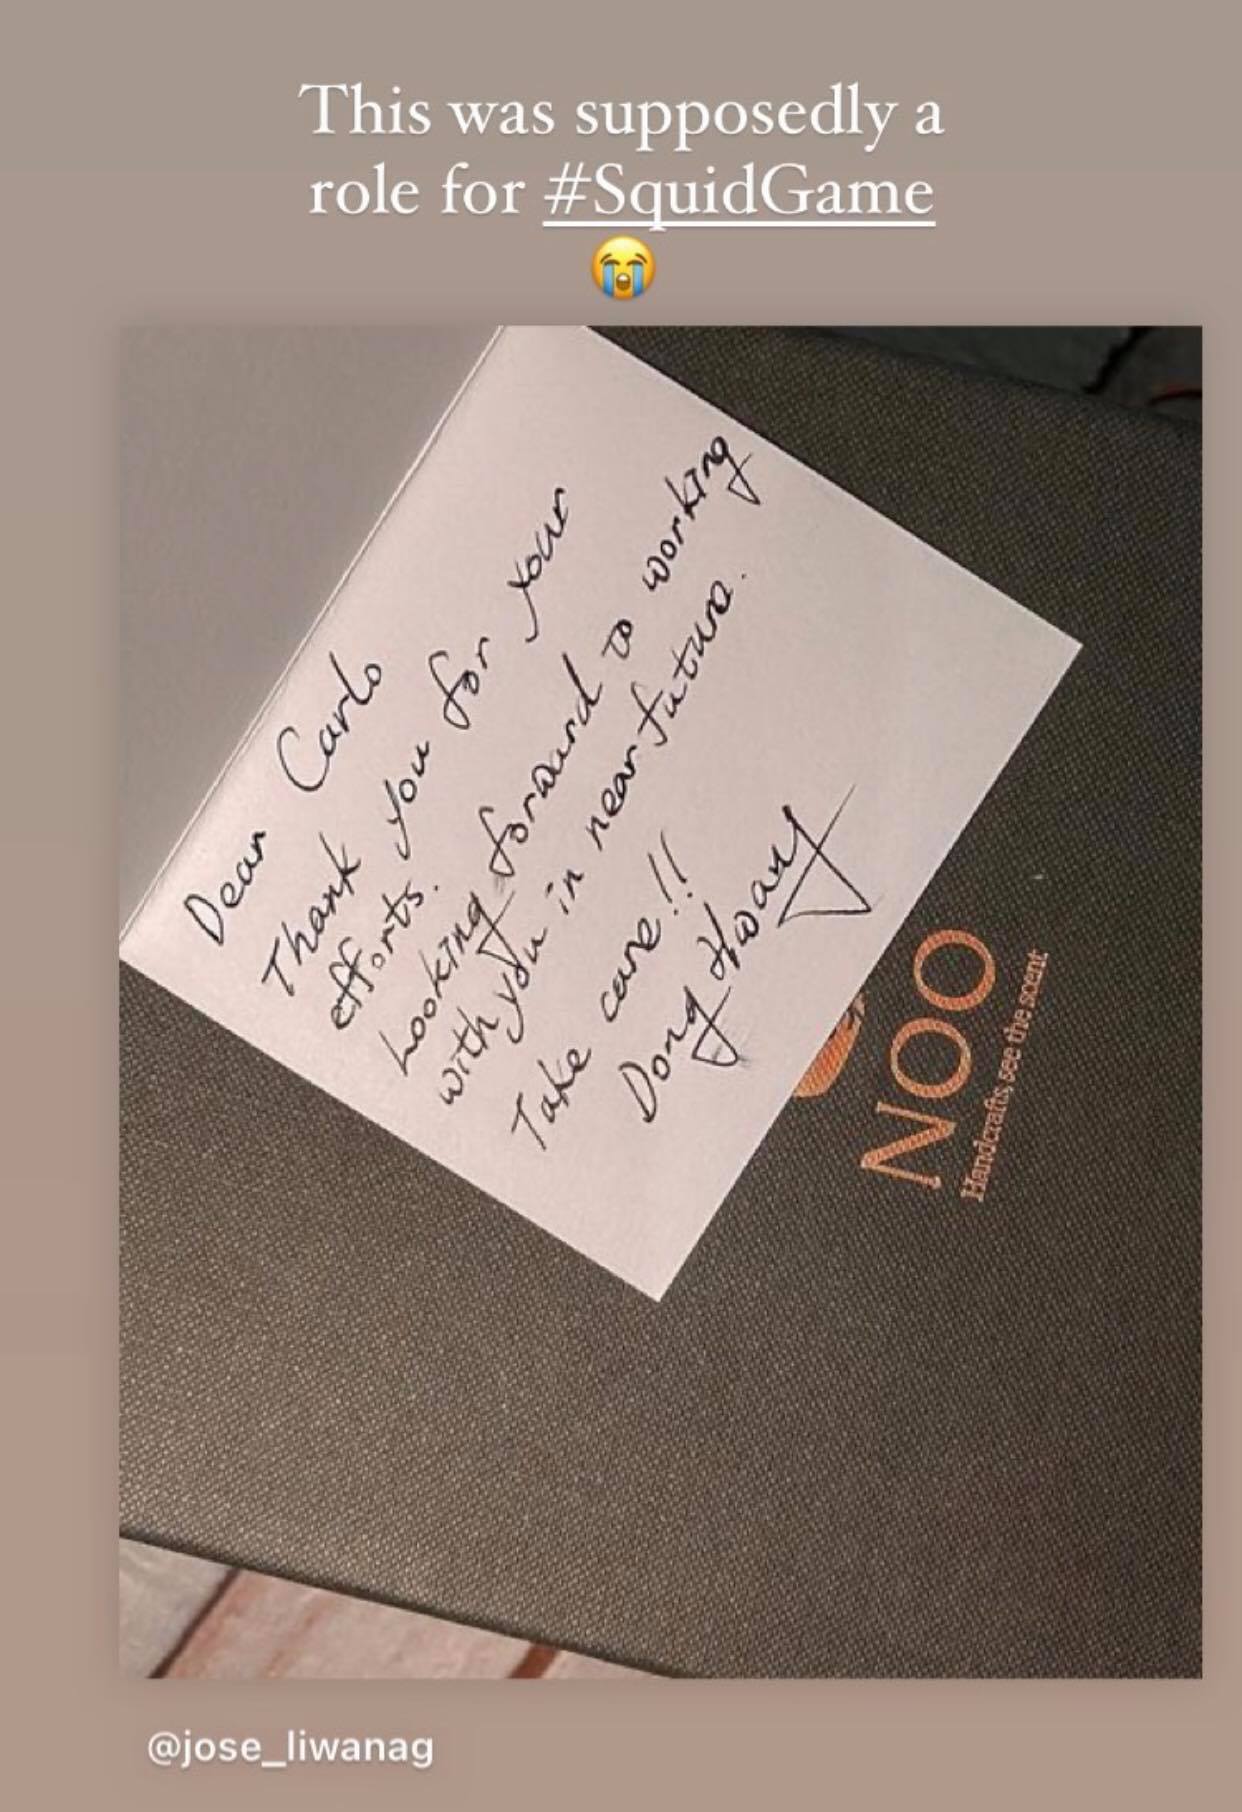 This was supposedly a
role for #SquidGame
😭
Dear Carlo
Thank you for your
efforts.
Looking forward to working
with you in near future.
Take care!!
Dong Hwang
NOO
Handcrafts, see the scent
@jose_liwanag